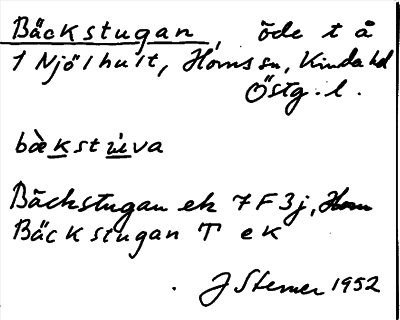 Bäckstugan, öde t å
1 Njölhult, Horns sn, Kinda hd
Östg. l.
bæ̀kstùiva
Bäckstugan ek 7F3j, Horn
Bäckstugan T ek
J Sterner 1952